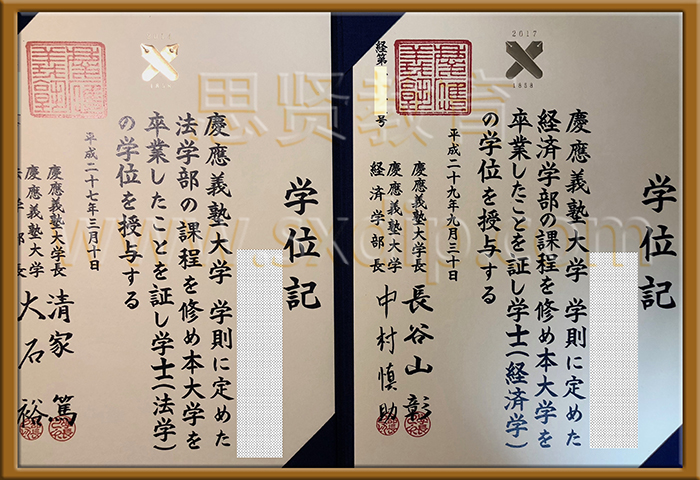 学位記
慶應義塾大学 学則に定めた
経済学部の課程を修め本大学を
卒業したことを証し学士(経済学)
の学位を授与する
平成二十九年九月三十日
慶應義塾大学長 長谷山 彰
慶應義塾大学
経済学部長 中村慎助
経第 号
2017
1858
学位記
慶應義塾大学 学則に定めた
法学部の課程を修め本大学を
卒業したことを証し学士(法学)
の学位を授与する
平成二十七年三月十日
慶應義塾大学長 清家 篤
慶應義塾大学
法学部長 大石 裕
思贤教育